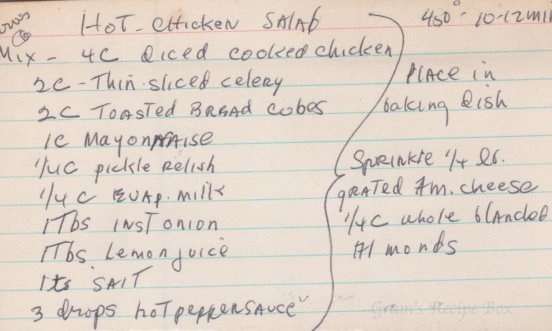 HOT-CHICKEN SALAD
Mix - 4C Diced cooked chicken
2C - Thin sliced celery
2C TOASTED BREAD CUBES
1C MAYONNAISE
1/4C pickle relish
1/4 C EVAP. Milk
1Tbs INST ONION
1Tbs Lemon juice
1ts SALT
3 drops hot pepper sauce
450° 10-12 min
PLACE in
baking Dish
SPRINKLE 1/4 lb.
GRATED Am. cheese
1/4C whole blanded
Almonds
Gram's Recipe Box